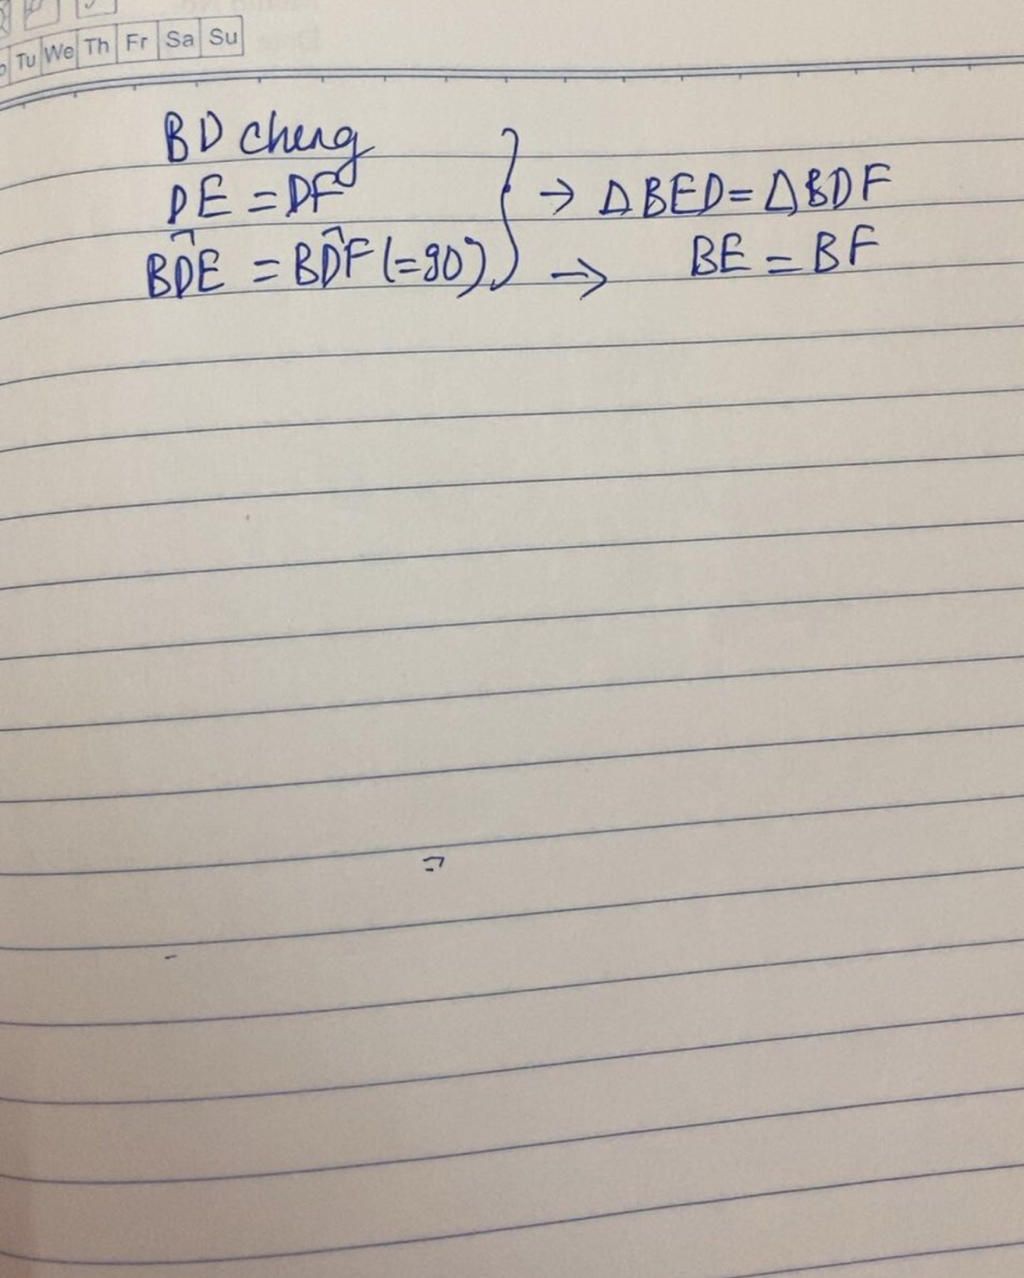 Tu We Th Fr Sa Su
BD chung
DE = DF
BD̂E = BD̂F (=90°)
→ ΔBED = ΔBDF
→ BE = BF